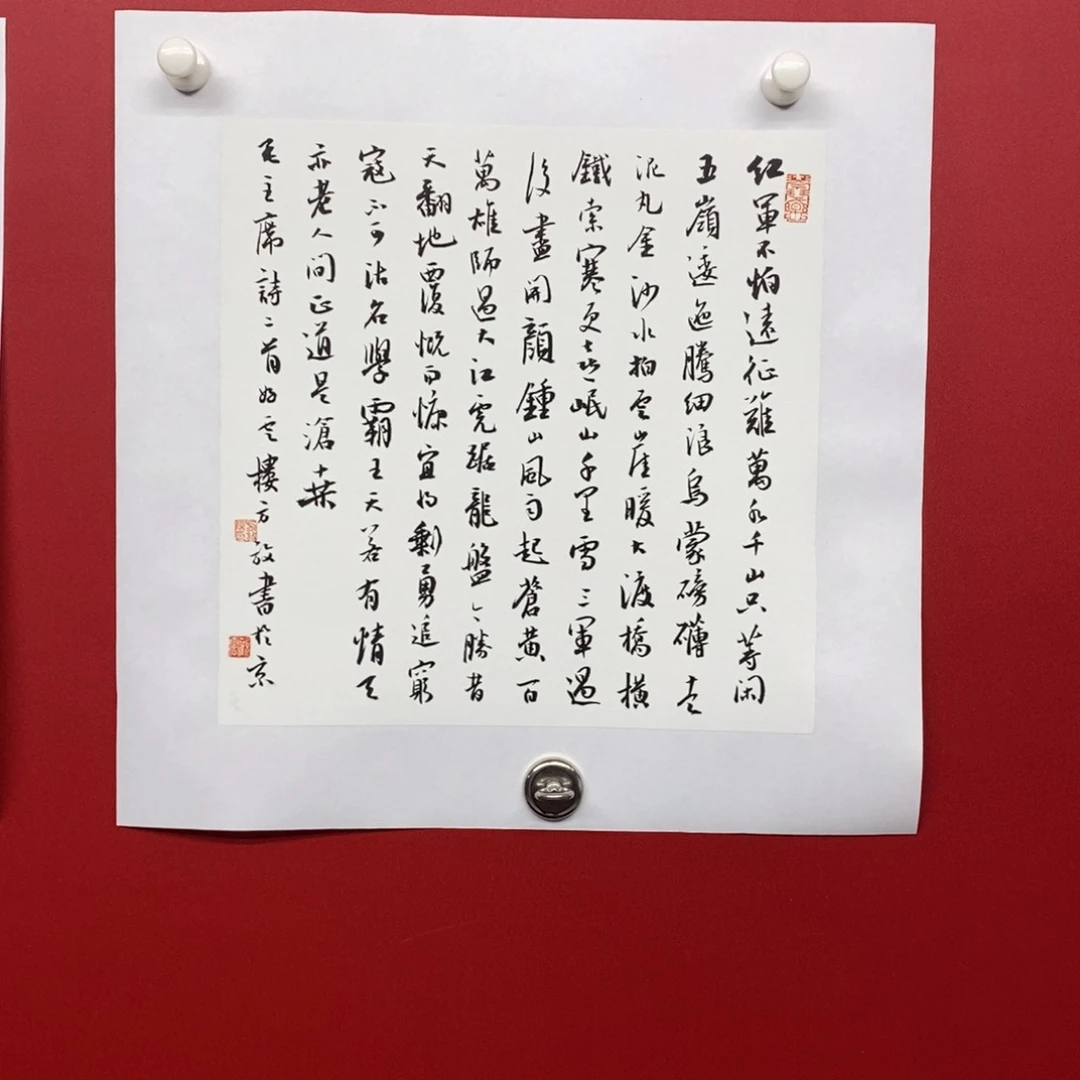 紅軍不怕遠征難萬水千山只等闲
五嶺逶迤騰細浪烏蒙磅礴走
泥丸金沙水拍雲崖暖大渡橋橫
鐵索寒更喜岷山千里雪三軍過
後盡開顏鍾山風雨起蒼黃百
萬雄師過大江虎踞龍盤今勝昔
天翻地覆慨而慷宜将剩勇追窮
寇不可沽名學霸王天若有情天
亦老人間正道是滄桒
毛主席詩二首雲樓方放書於京